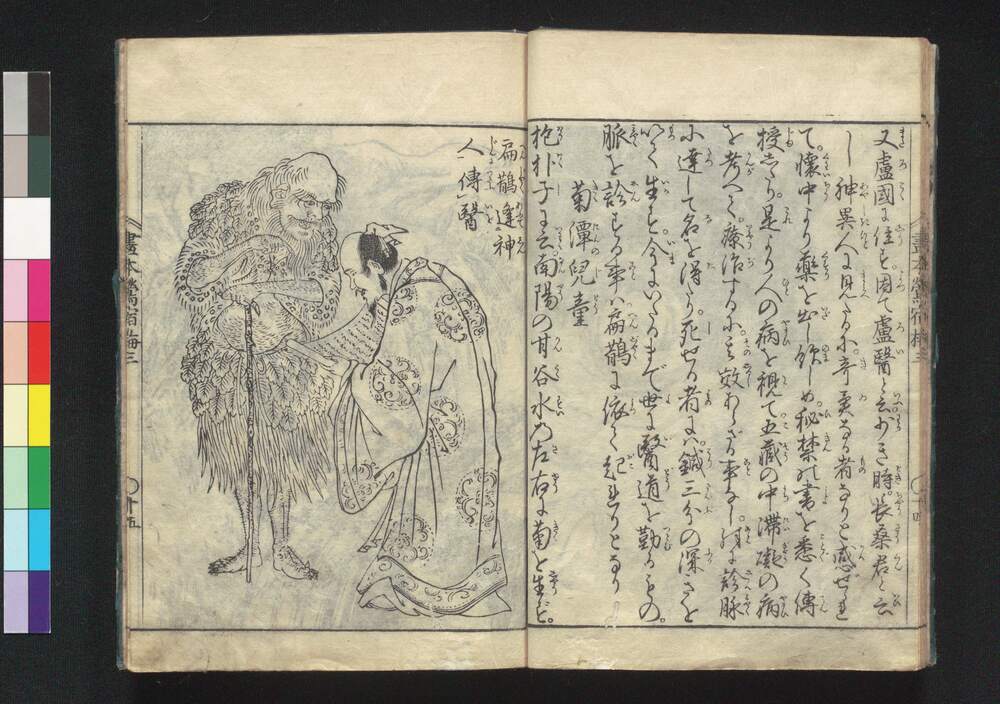 又盧國に住す因て盧醫と云少き時。長桑君と云
し神異人に見たるに奇異なる者なりと感ぜられ
て。懐中より藥を出し飲しめ。秘禁の書を悉く傳
授せり。是より人の病を視て五藏の中滞礙の病
を考へて。療治するに其效あらざる事なし。殊に診脉
に達して名を得たり死せる者には鍼三分の深さを
いて生と。今にいたるまで世に醫道を勤るもの。
脈を診する事ハ扁鵲に依て起れりとなり
菊潭兒童
抱朴子に云。南陽の甘谷水乃左右に菊を生ず。
扁鵲逢神
人傳醫
畫本鶯宿梅三
十四
畫本鶯宿梅三
十五